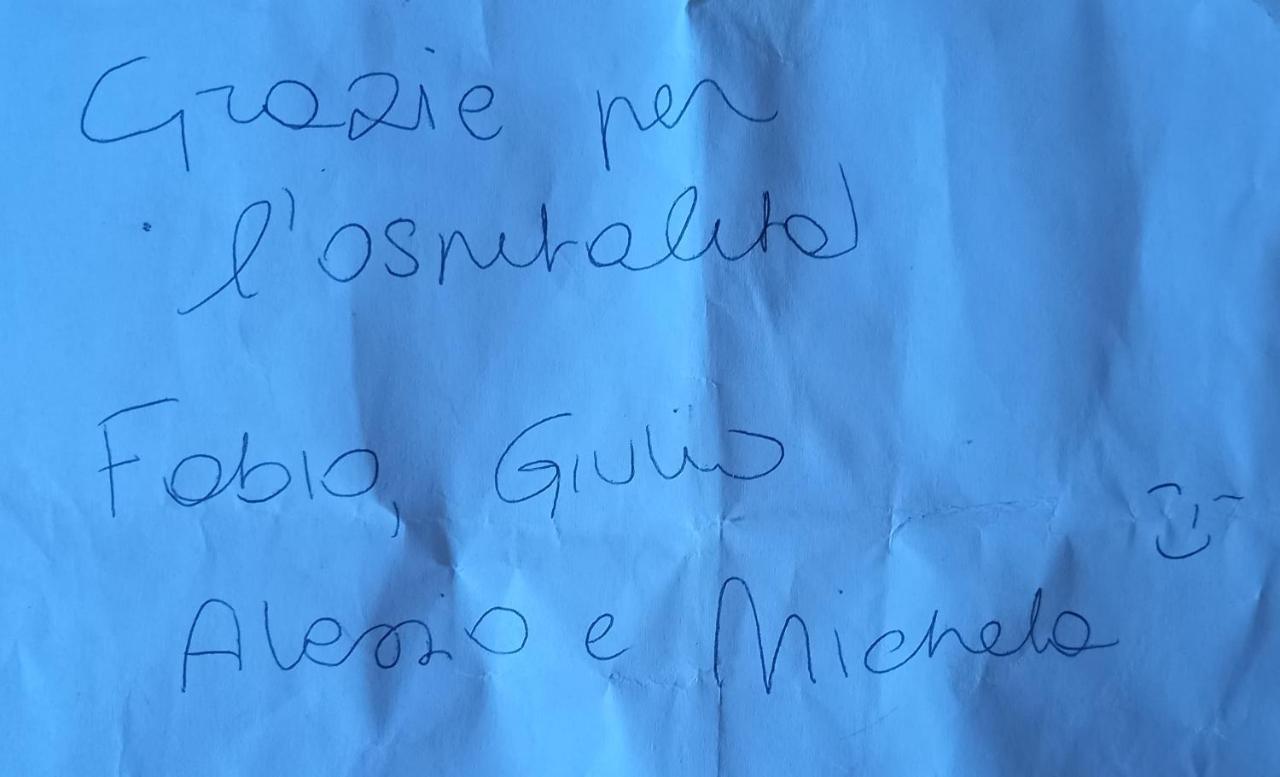 Grazie per
l'ospitalità
Fabio, Giulio
Alessio e Michela